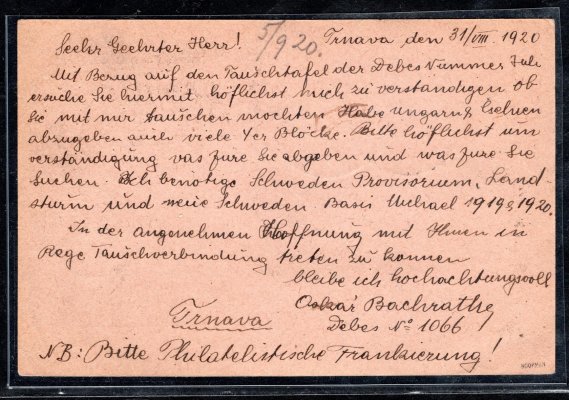 5/9 20.
Trnava den 31/VIII 1920
Seehr Geehrter Herr!
Mit Bezug auif den Tauschtafel der Debes Nummer Juli
ersuche Sie hiermit, höflichst mich zu verständigen ob
Sie mit mir tauschen mochten Habe Ungarn &
abzugeben auch viele 4er Blöcke. Bitte höflichst um
verständigung vas fure Sie abgeben und was fure Sie
suchen. Ich benötige Schweden Provisorium, Land-
sturm und neue Schweden. Basis Michael 1919 & 1920.
In der angenehmen Hoffnung mit Ihnen in
Rege Tauschverbindung treten zu konnen
bleibe ich hochachtungsvoll
Oskár Bachrathy
Trnava
Debes No 1066
NB: Bitte Philatelistische Frankierung!